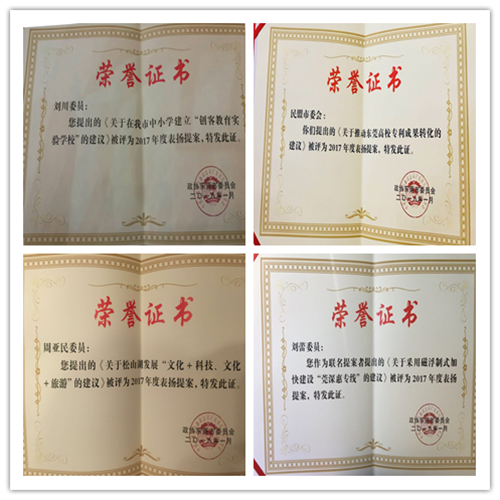 荣誉证书
刘川委员：
您提出的《关于在我市中小学建立“创客教育实
验学校”的建议》被评为2017年度表扬提案，特发此证。
政协东莞市委员会
二〇一八年一月
荣誉证书
民盟市委会：
你们提出的《关于推动东莞高校专利成果转化的
建议》被评为2017年度表扬提案，特发此证。
政协东莞市委员会
二〇一八年一月
荣誉证书
周亚民委员：
您提出的《关于松山湖发展“文化+科技、文化
+旅游”的建议》被评为2017年度表扬提案，特发此证。
政协东莞市委员会
二〇一八年一月
荣誉证书
刘蕾委员：
您作为联名提案者提出的《关于采用磁浮制式加
快建设“莞深惠专线”的建议》被评为2017年度表扬
提案，特发此证。
政协东莞市委员会
二〇一八年一月